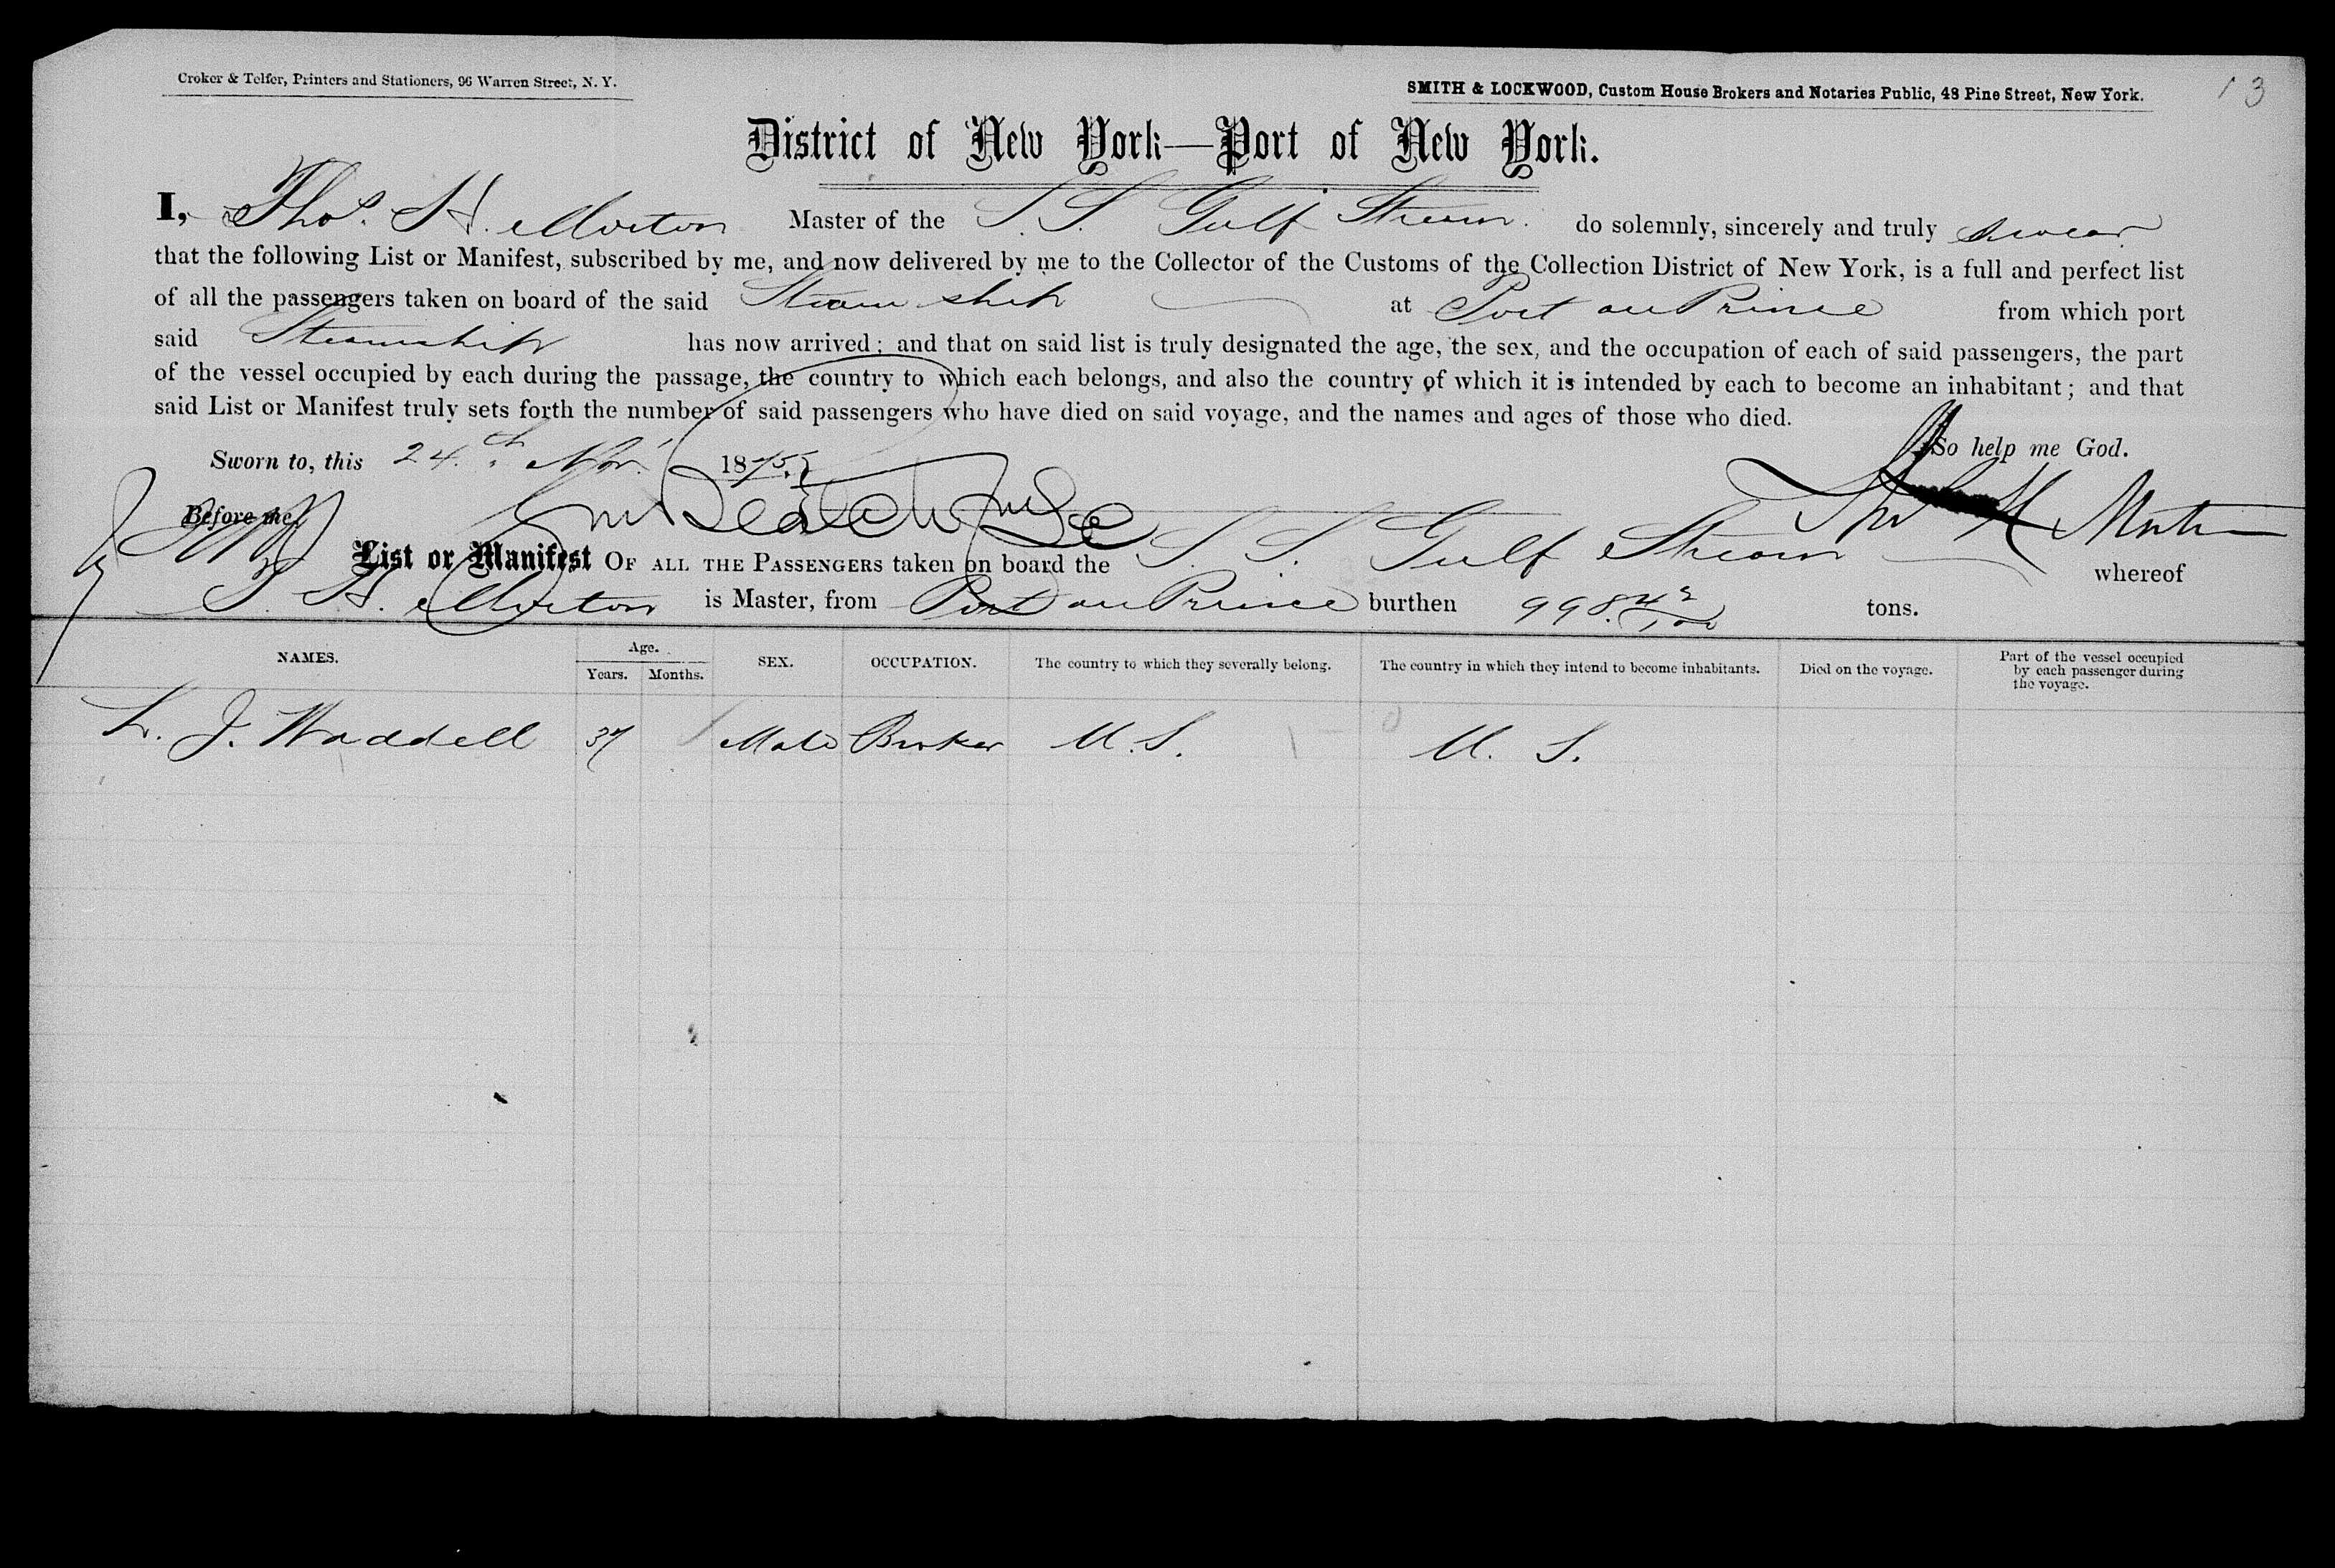 Croker & Telfer, Printers and Stationers, 96 Warren Street, N. Y.
SMITH & LOCKWOOD, Custom House Brokers and Notaries Public, 48 Pine Street, New York.
13
District of New York—Port of New York.
I, Thos. H. Morton Master of the S. S. Gulf Stream. do solemnly, sincerely and truly swear
that the following List or Manifest, subscribed by me, and now delivered by me to the Collector of the Customs of the Collection District of New York, is a full and perfect list
of all the passengers taken on board of the said Steam ship at Port au Prince from which port
said Steamship has now arrived; and that on said list is truly designated the age, the sex, and the occupation of each of said passengers, the part
of the vessel occupied by each during the passage, the country to which each belongs, and also the country of which it is intended by each to become an inhabitant; and that
said List or Manifest truly sets forth the number of said passengers who have died on said voyage, and the names and ages of those who died.
So help me God.
Sworn to, this 24th Nov. 1875.
Thos H Morton
Before me,
List or Manifest OF ALL THE PASSENGERS taken on board the S. S. Gulf Stream whereof
T. H. Morton is Master, from Port au Prince burthen 998. 42/100 tons.
NAMES. Age. Years. Months. SEX. OCCUPATION. The country to which they severally belong. The country in which they intend to become inhabitants. Died on the voyage. Part of the vessel occupied by each passenger during the voyage.
L. J. Waddell 37 Male Broker U. S. U. S.